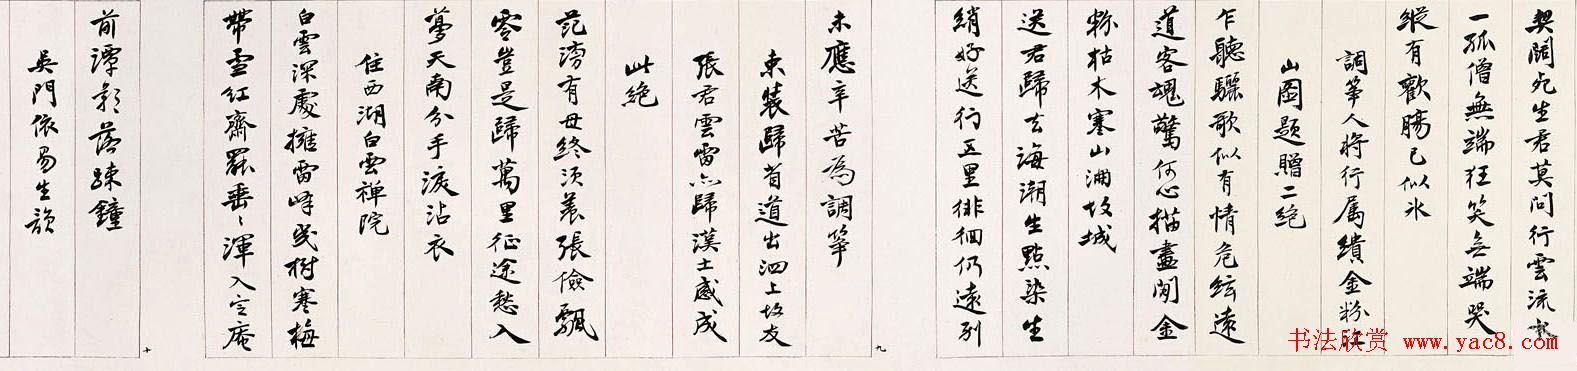 契闊死生君莫問行雲流水
一孤僧無端狂笑無端哭
縱有歡腸已似冰
調箏人將行屬繢金粉江
山圖題贈二絕
乍聽驪歌似有情危絃遠
道客魂驚何心描畫閒金
粉枯木寒山滿故城
送君歸去海潮生點染生
綃好送行五里徘徊仍遠別
未應辛苦為調箏
九
束裝歸省道出泗上故友
張君雲雷亦歸漢土感成
此絕
范滂有母終須養張儉飄
零豈是歸萬里征途愁入
夢天南分手淚沾衣
住西湖白雲禪院
白雲深處擁雷峰幾樹寒梅
帶雪紅齋罷垂〻渾入定庵
十
前潭影落疎鐘
吳門依易生韻
书法欣赏 www.yac8.com